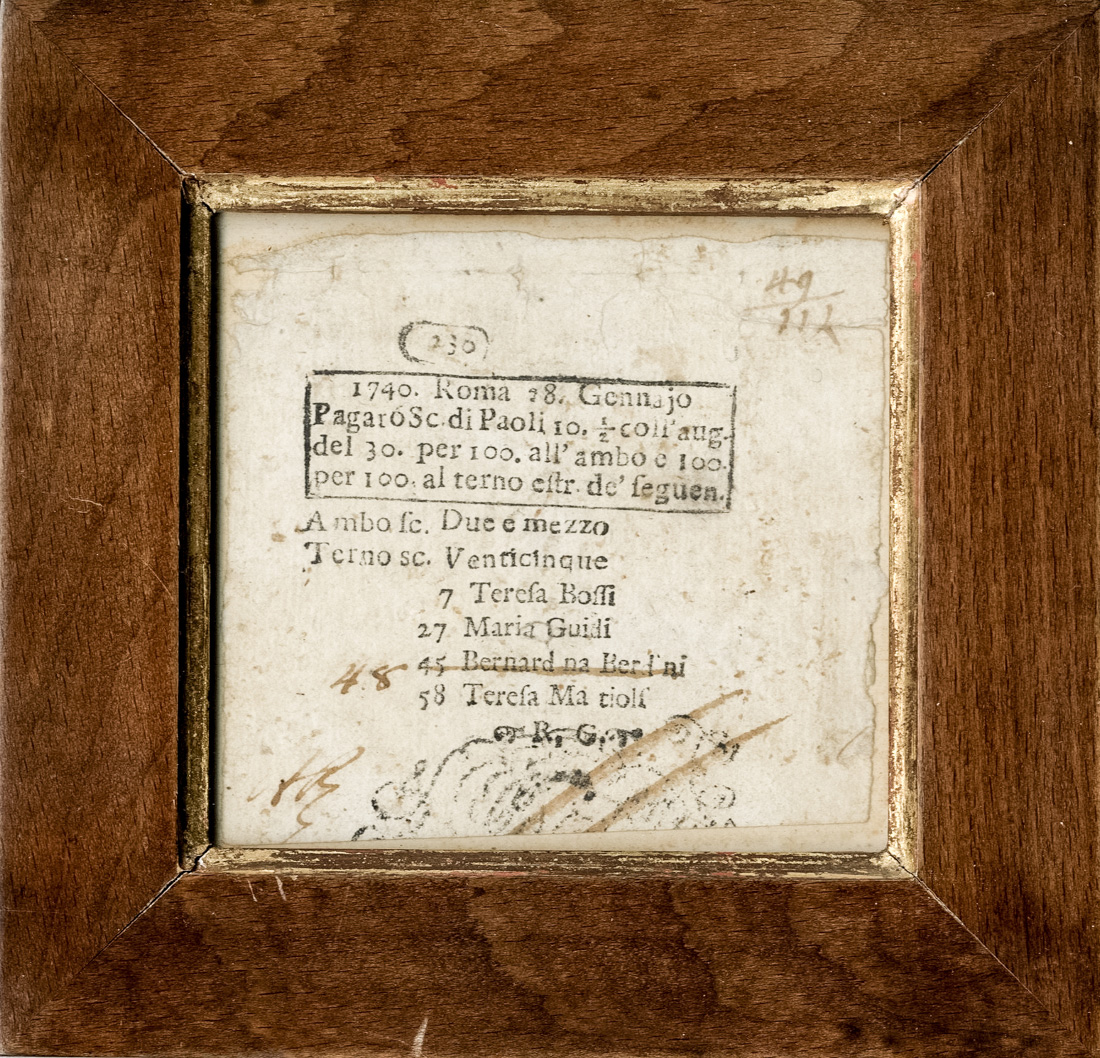 49
111
230
1740. Roma 28. Gennajo
Pagaró Sc. di Paoli 10. ½ coll'aug.
del 30. per 100. all'ambo e 100.
per 100. al terno eſtr. de' ſeguen.
Ambo ſc. Due e mezzo
Terno sc. Venticinque
7 Tereſa Boſſi
27 Maria Guidi
48 45 Bernard na
58 Tereſa
R. G.